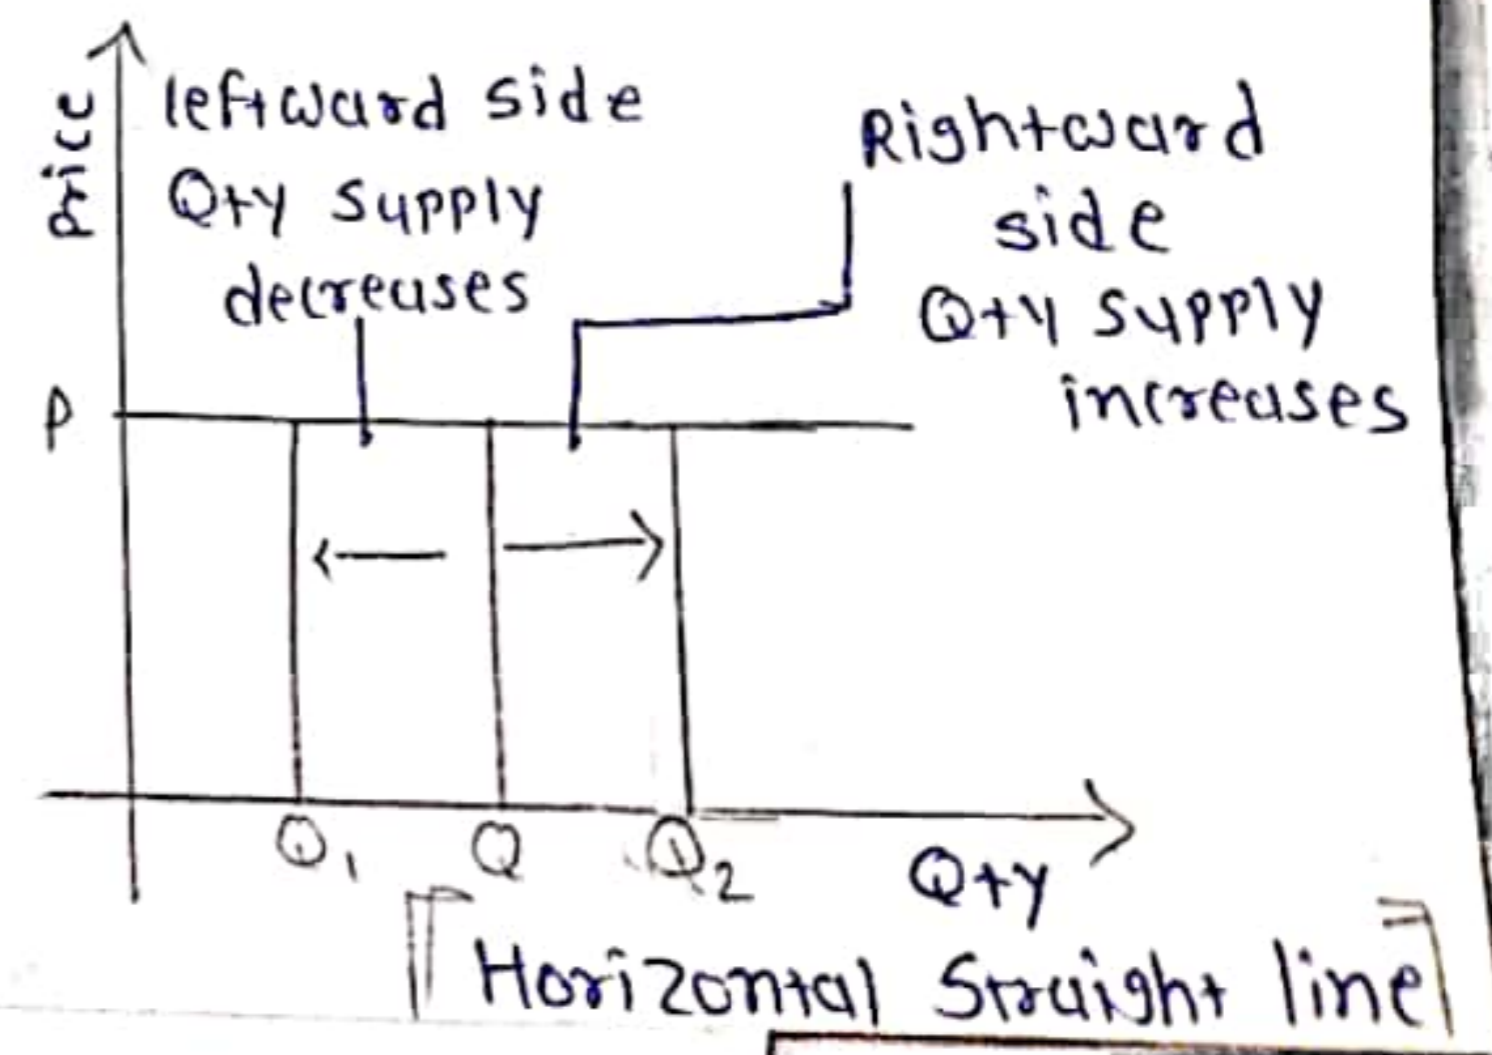 Price
leftward side
Qty supply
decreases
Rightward
side
Qty supply
increases
P
Q1
Q
Q2
Qty
Horizontal Straight line